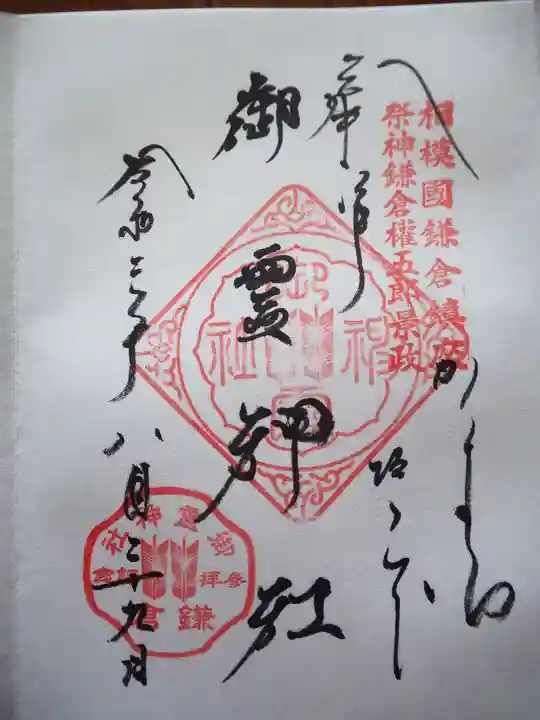 相模國鎌倉鎮座
祭神鎌倉權五郎景政
かまくら
坂ノ下
奉拝
御霊神社
令和三年
八月二十九日
御霊神社
参拝記念
鎌倉